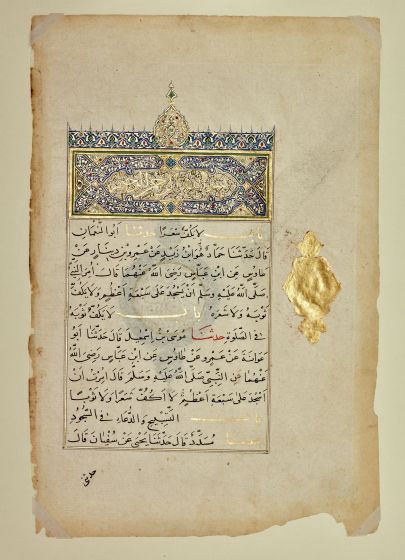 بسم الله الرحمن الرحيم
باب لا يكف شعرا حدثنا ابو النعمان
قال حدثنا حماد هو ابن زيد عن عمرو بن دينار عن
طاوس عن ابن عباس رضى الله عنهما قال امر النبي
صلى الله عليه وسلم ان يسجد على سبعة اعظم ولا يكف
ثوبه ولا شعره باب لا يكف ثوبه
في الصلوة حدثنا موسى بن اسمعيل قال حدثنا ابو
عوانة عن عمرو عن طاوس عن ابن عباس رضى الله
عنهما عن النبي صلى الله عليه وسلم قال امرت ان
اسجد على سبعة اعظم لا اكف شعرا ولا ثوبا
باب التسبيح والدعاء في السجود
حدثنا مسدد قال حدثنا يحيى عن سفيان قال